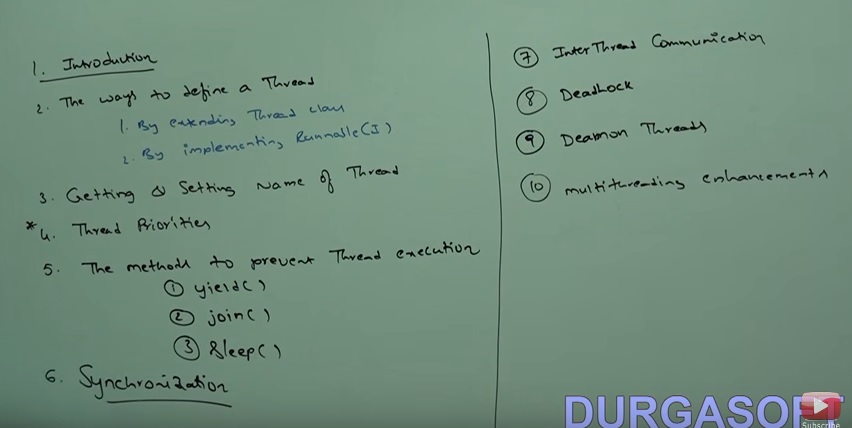 1. Introduction
2. The ways to define a Thread
1. By extending Thread class
2. By implementing Runnable(I)
3. Getting & Setting Name of Thread
*4. Thread Priorities
5. The methods to prevent Thread execution
① yield()
② join()
③ Sleep()
6. Synchronization
⑦ InterThread Communication
⑧ Deadlock
⑨ Deamon Threads
⑩ multithreading enhancements
DURGASOFT
Subscribe